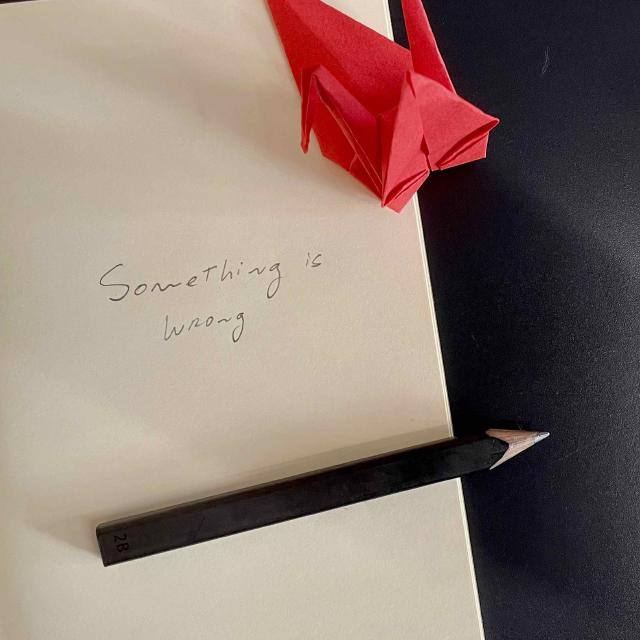 Something is
wrong
2B